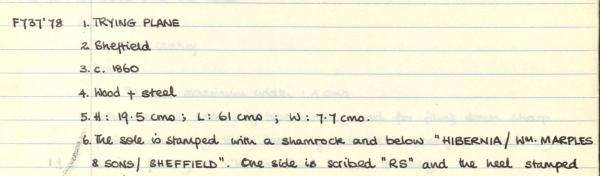 F737'78 1. TRYING PLANE
2. Sheffield
3. c. 1860
4. Wood + steel
5. H: 19.5 cms; L: 61 cms; W: 7.7 cms.
6. The sole is stamped with a shamrock and below "HIBERNIA/ WM. MARPLES
& SONS/ SHEFFIELD". One side is scribed "RS" and the heel stamped